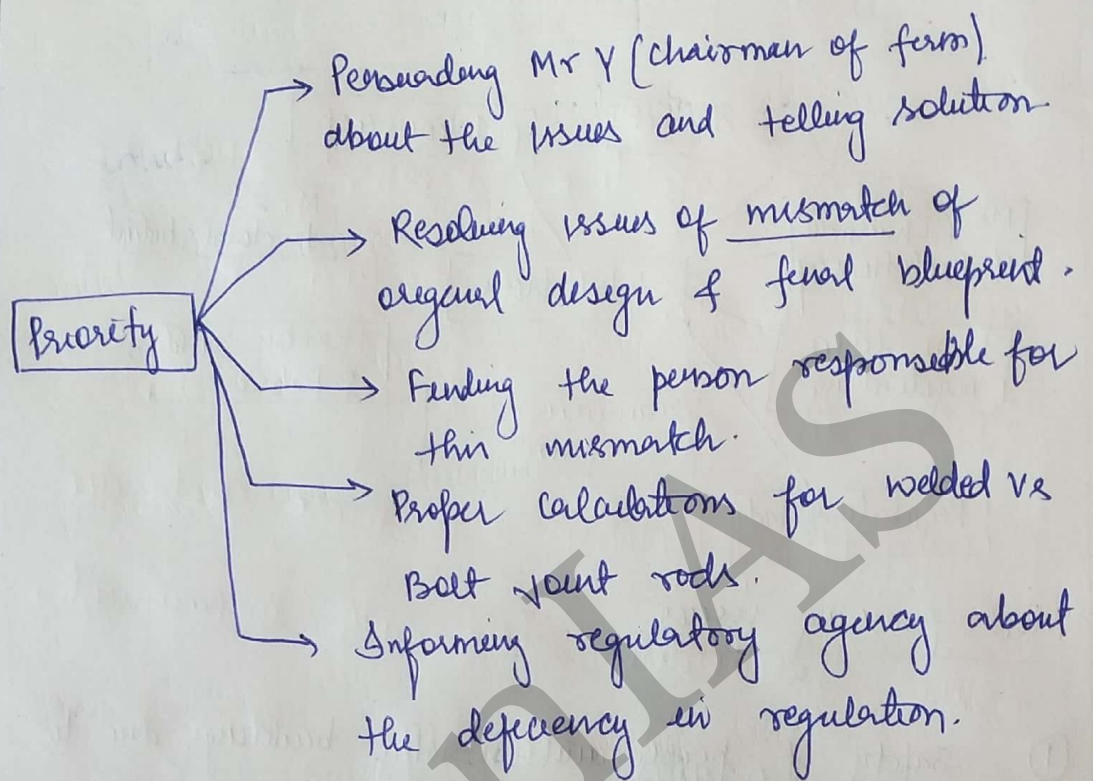 Persuading Mr Y (chairman of firm)
about the issues and telling solution.
Resolving issues of mismatch of
original design & final blueprint.
Priority
Finding the person responsible for
this mismatch.
Proper calculations for welded vs
Bolt joint rods.
Informing regulatory agency about
the deficiency in regulation.
nIAS